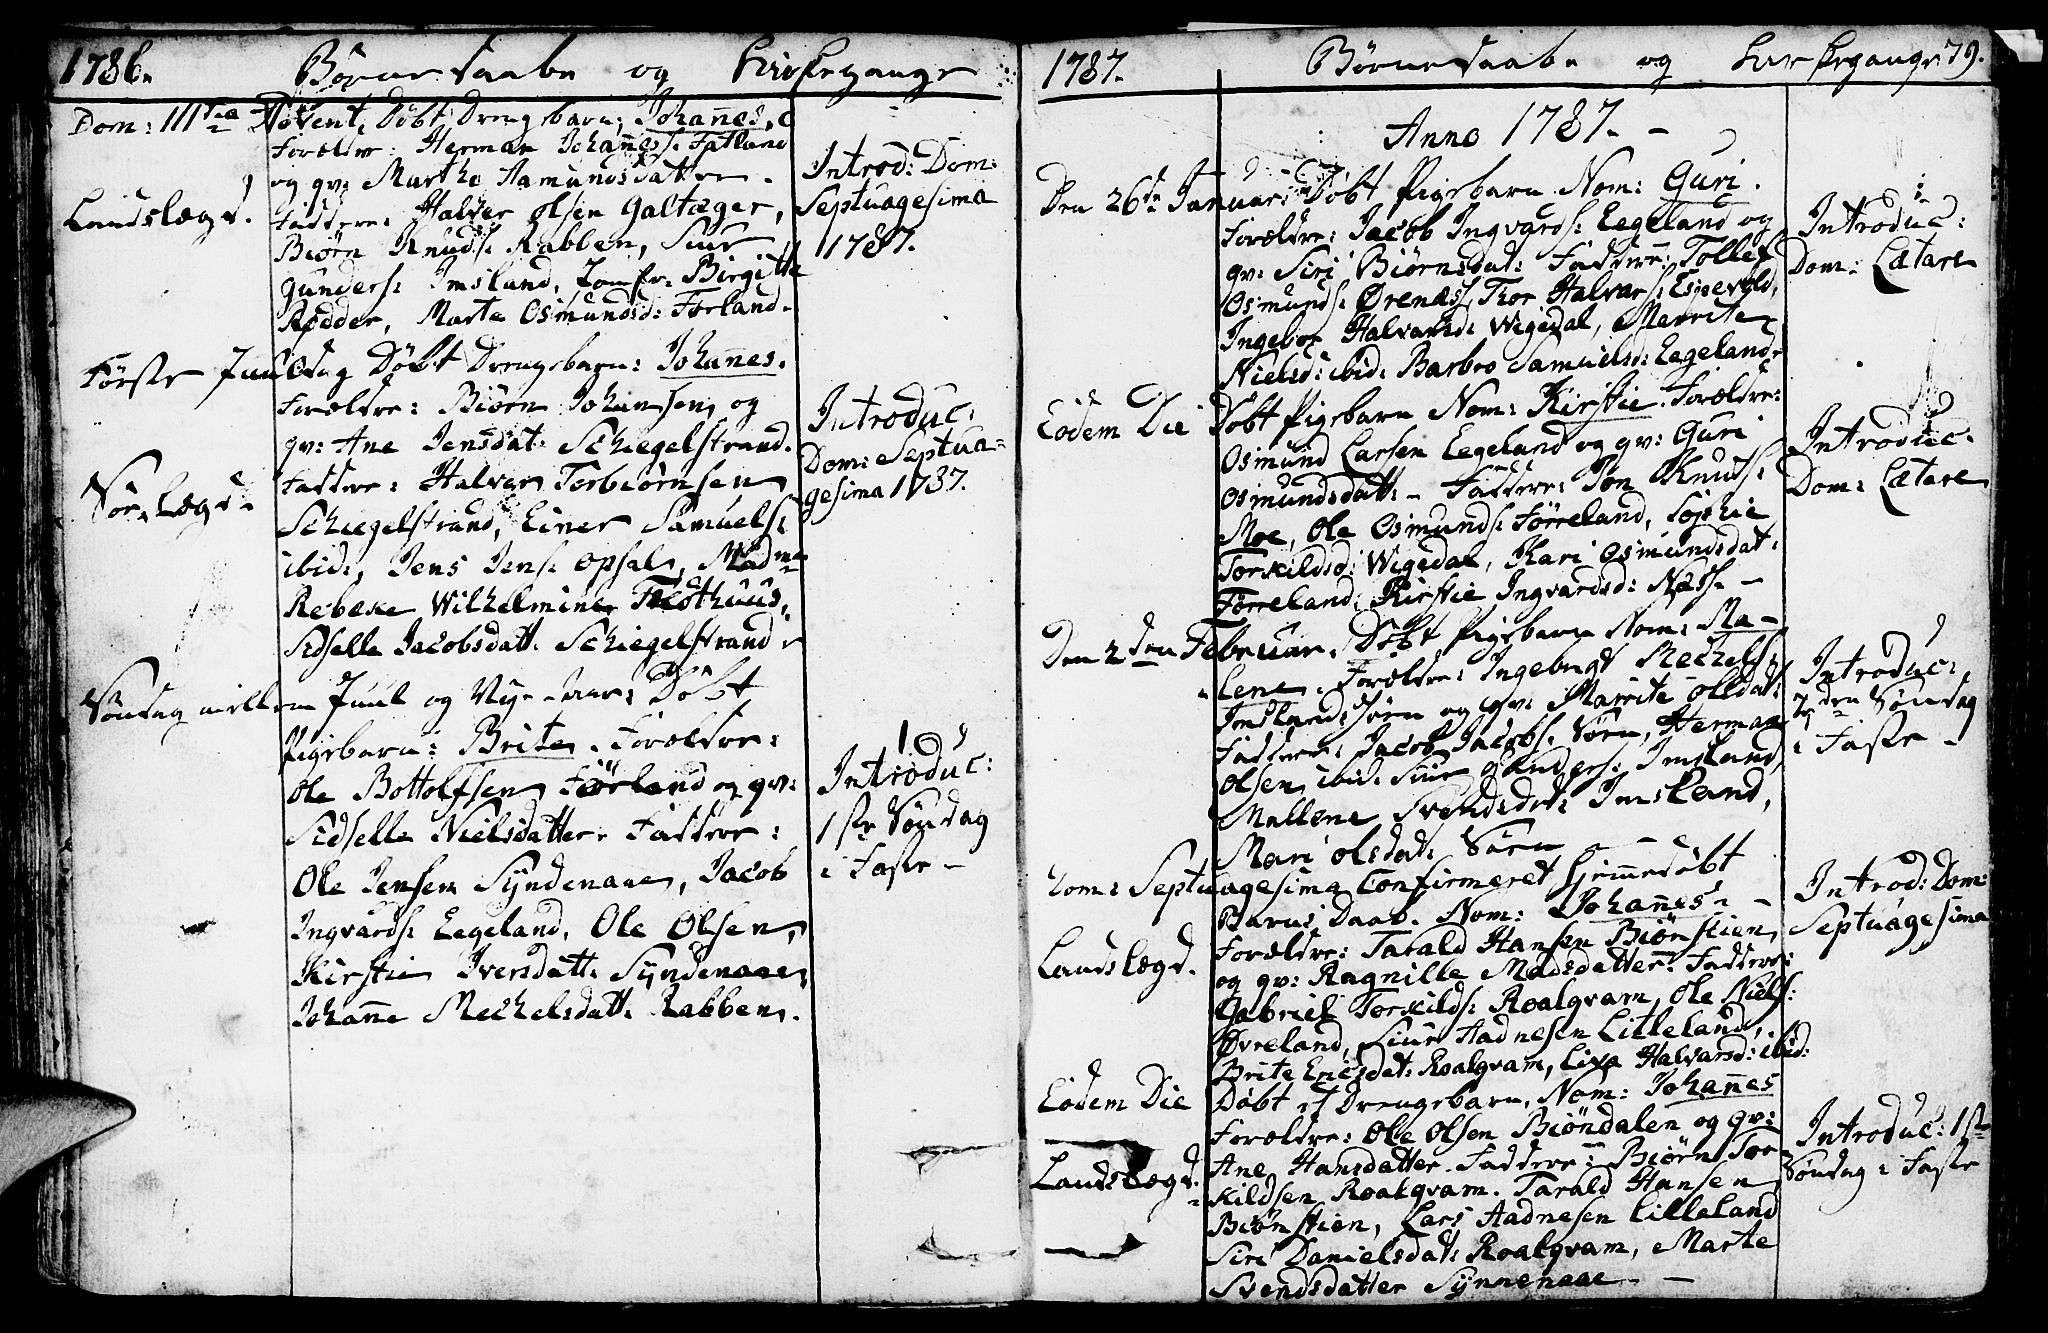 1786. Børne Daabe og Kirkegange
Dom: III tia Advent, Døbt Drengebarn, Johañes,
Forældre: Herman Johañess: Fatland
og qv: Marthe Aamundsdatter.
Landslægd.
Faddere: Halver Olsen Galtæger,
Biørn Knuds: Rabben, Siur
Gunders: Imsland, Jomfr. Birgitte
Rødder, Marte Osmundsd: Førland.
Introd: Dom:
Septuagesima
1787.
Første Juuledag Døbt Drengebarn: Johañes.
Forældre: Biørn Johansen og
qv: Ane Jensdat: Schiegelstrand.
Sørlægd.
Faddere: Halver Torbiørnsen
Schiegelstrand, Einer Samuels:
ibid:, Jens Jens: Opsal, Madme
Rebeke Wilhelmine
Sidselle Jacobsdatt: Schiegelstrand.
Introduc:
Dom: Septua-
gesima 1787.
Søndag mellem Juul og Ny-Aar: Døbt
Pigebarn: Brite. Forældre:
Ole Bottolfsen Førland og qv:
Sidselle Nielsdatter. Faddere:
Ole Jensen Syndenaae, Jacob
Ingvards: Eegeland, Ole Olsen,
Kirstie Iversdatt: Syndenaae,
Johañe Mechelsdatt: Rabben.
Introduc:
1ste Søndag
i Faste -
1787. Børne Daabe og Kirkegange 79.
Anno 1787. -
Den 26de Januar: Døbt Pigebarn Nom: Guri.
Forældre: Jacob Ingvards: Eegeland og
qv: Siri Biørnsdat: Faddere: Tollef
Osmunds: Ørenæs, Thor Halvars: Espevold,
Ingebor Halvarsd: Wigedal, Marrite
Nielsd: ibid: Barbro Samuelsd: Eegeland.
Introduc:
Dom: Lætare
Eodem Die Døbt Pigebarn Nom: Kirstie. Forældre:
Osmund Larsen Eegeland og qv: Guri
Osmundsdatt: - Faddere: Jon Knuds:
Moe, Ole Osmunds: Førreland, Sophie
Torkildsd: Wigedal, Kari Osmundsdat:
Førreland, Kirstie Ingvardsd: Næs. -
Introduc:
Dom: Lætare
Den 2den Februar, Døbt Pigebarn Nom: Ma-
lene. Forældre: Ingebrigt Mechels:
Imsland, Sørn og qv: Marrite Olsdat:
Faddere: Jacob Jacobs: Sørn, Herman
Olsen ibid: Siur Gunders: Imsland,
Mallene Svendsdat: Imsland,
Mari Olsdat: Sørn -
Introduc:
den Søndag
i Faste -
Dom: Septuagesima Confirmeret Hjemmedøbt
Barns Daab. Nom: Johañes. -
Landslægd.
Forældre: Tarald Hansen Biønstien
og qv: Ragnille Madsdatter. Faddere:
Gabriel Torkilds: Roalqvam, Ole Niels:
Øvreland, Siur Aadnesen Lilleland,
Brite Ericsdat: Roalqvam, Liva Halvarsd: ibid:
Introd: Dom:
Septuagesima
Eodem Die Døbt et Drengebarn, Nom: Johañes
Forældre: Ole Olsen Biøndalen og qv:
Landslægd.
Ane Hansdatter. Faddere: Biørn Tor
kildsen Roalqvam. Tarald Hansen
Biønstien, Lars Aadnesen Lilleland
Siri Danielsdat: Roalqvam, Marte
Svendsdatter Synnenaae. -
Introduc: 1ste
Søndag i Faste